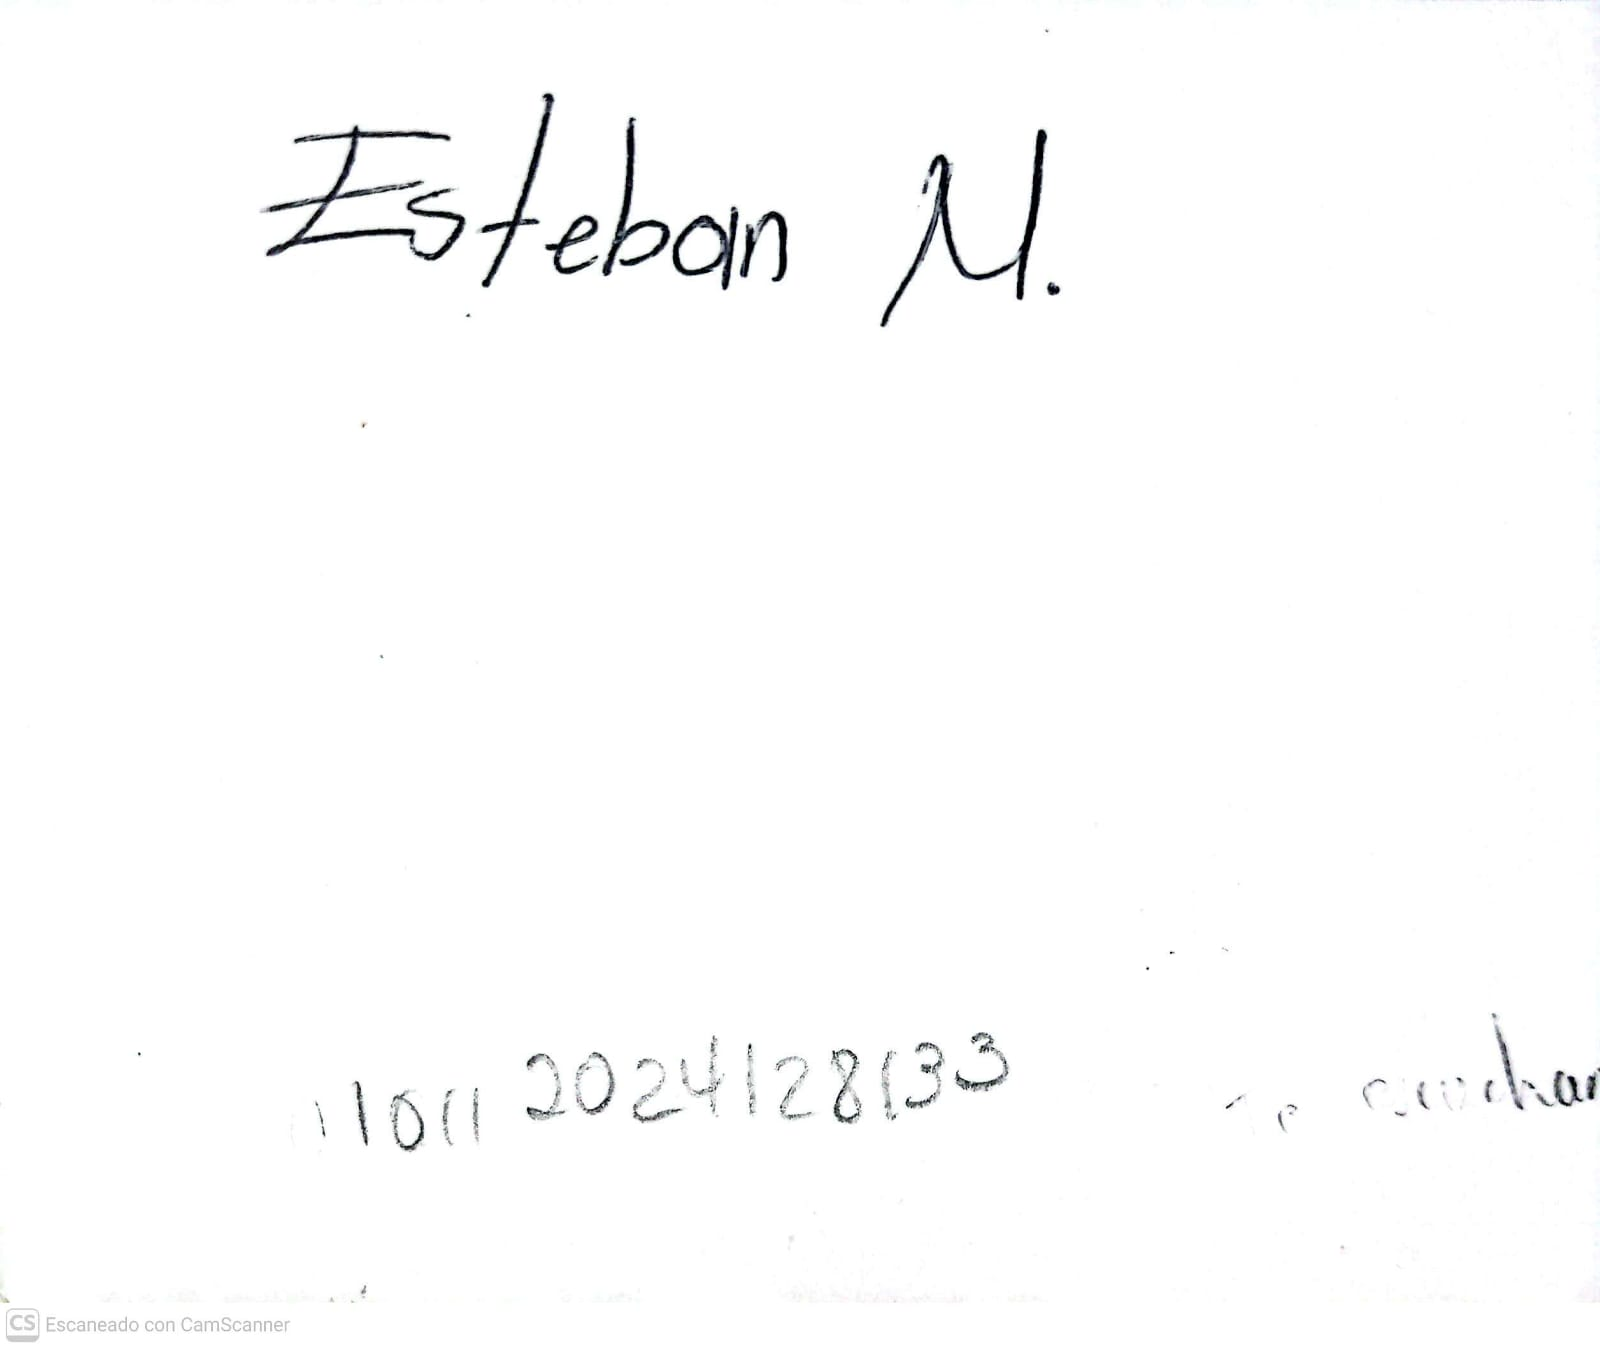 Esteban M.
11011 2024128133
CS Escaneado con CamScanner